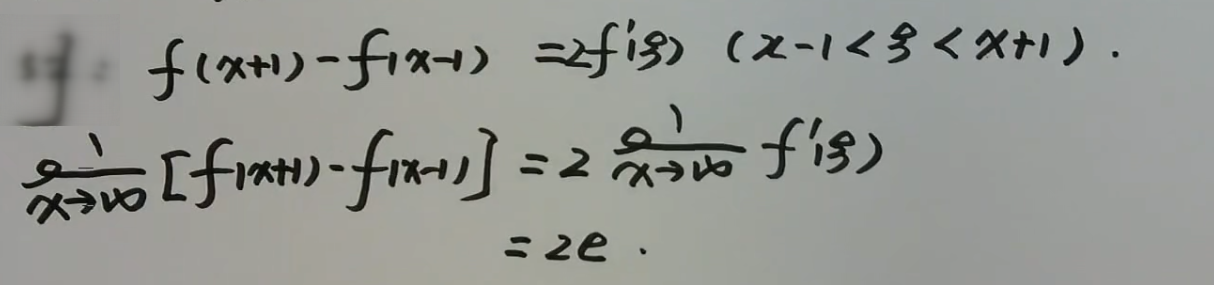 f(x+1)-f(x-1) =2f'(ξ) (x-1<ξ<x+1).
lim x→∞ [f(x+1)-f(x-1)] = 2 lim x→∞ f'(ξ)
= 2e .